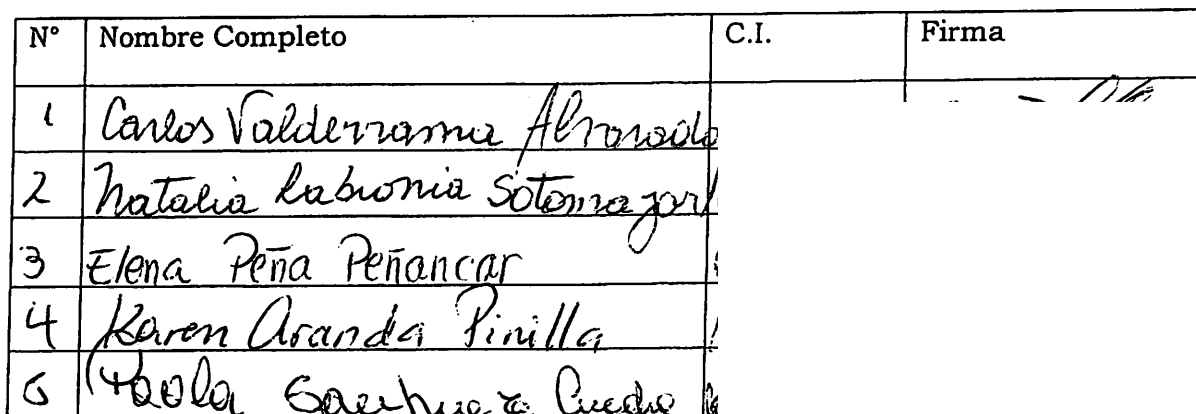 N° Nombre Completo C.I. Firma
1 Carlos Valderrama Alvarado
2 Natalia Sotomayor
3 Elena Peña Peñancar
4 Karen Aranda Pinilla
5 Paola